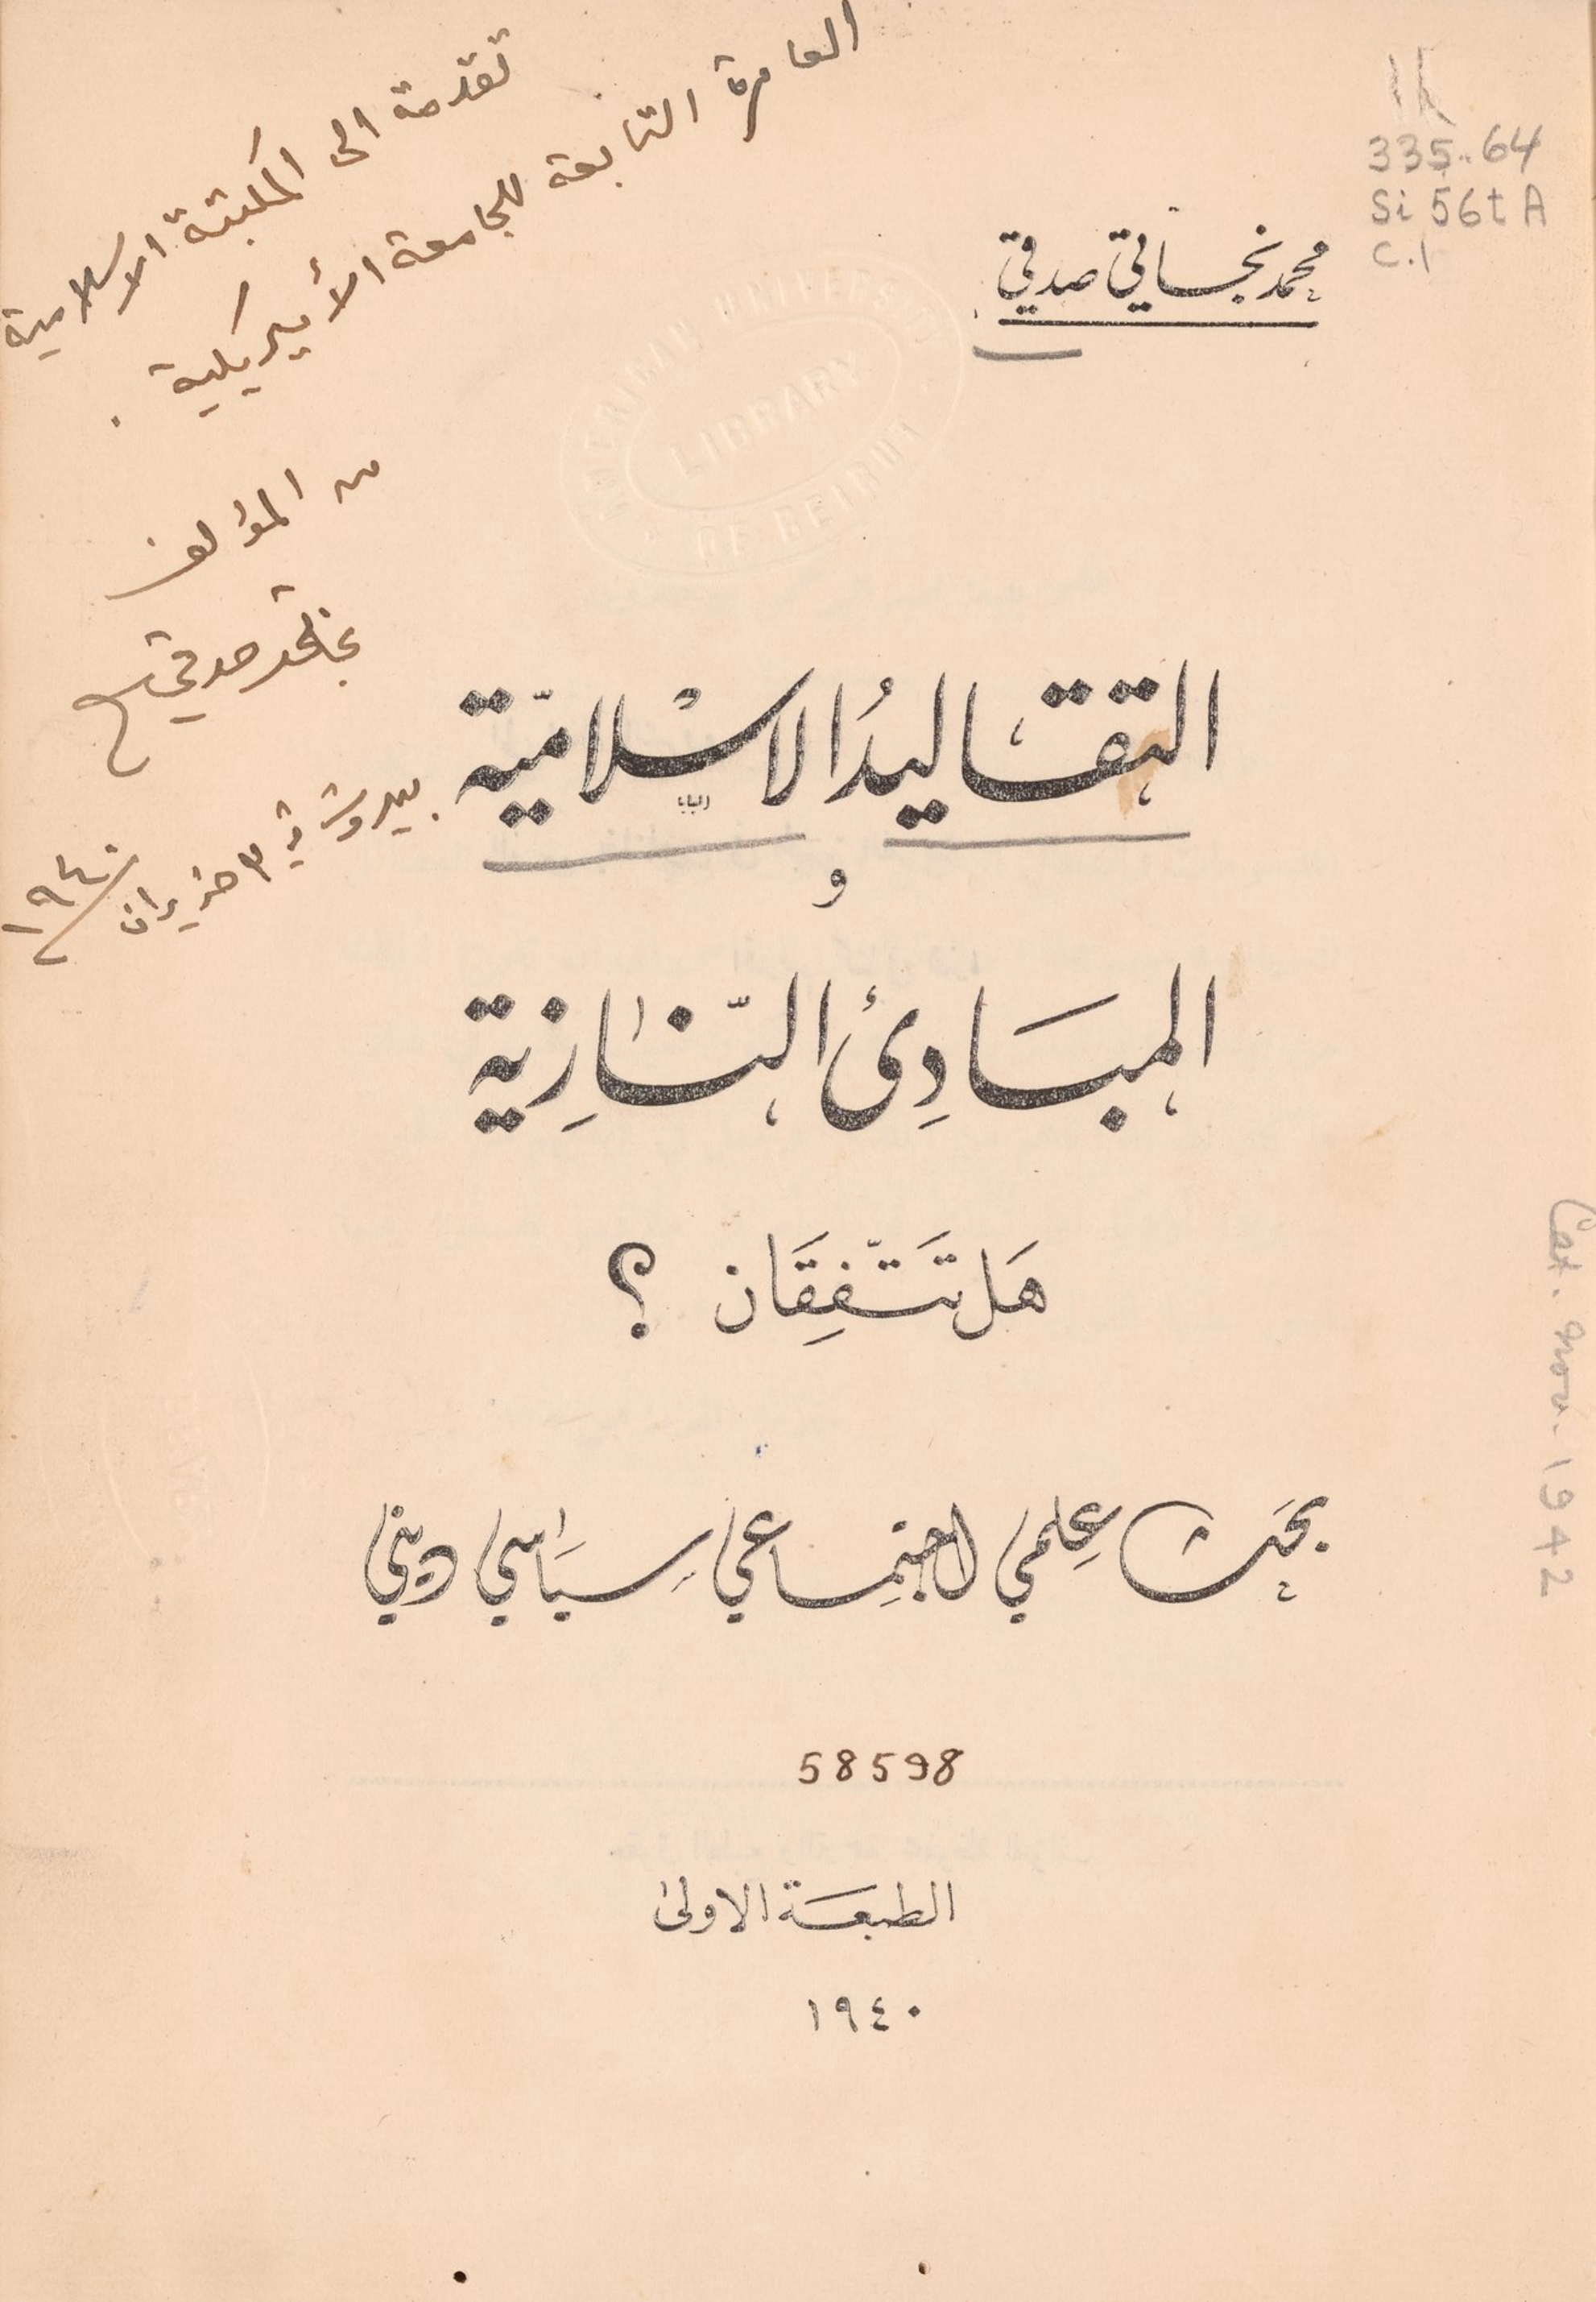 تقدمة الى المكتبة الاسلامية
العامرة التابعة للجامعة الأميريكية .
من المؤلف
محمد نجاتي صدقي
بيروت في ٣ حزيران ١٩٤٠
335.64
Si 56t A
C.1
محمد نجاتي صدقي
AMERICAN UNIVERSITY
LIBRARY
OF BEIRUT
التقاليدُ الاسْلاميّة
و
المبَادِئ النّازِية
هَل تَتّفِقَان ؟
بحَث عِلمي اجتِماعي سِيَاسي ديني
58598
الطبعَة الاولى
١٩٤٠
Cat. Nov. 1942